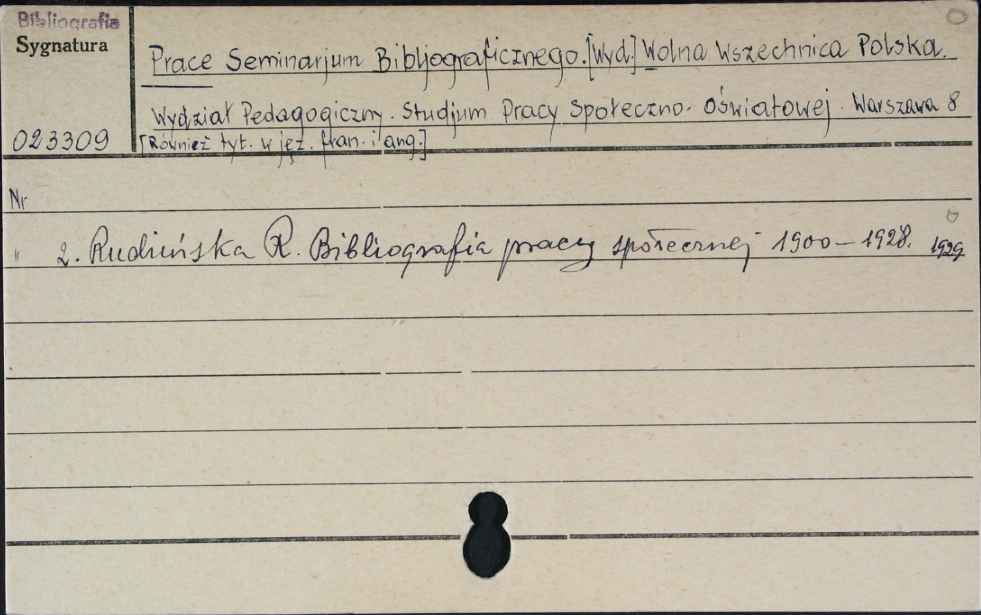 Bibliografia
Sygnatura
Prace Seminarjum Bibljograficznego. [Wyd.] Wolna Wszechnica Polska.
Wydział Pedagogiczny. Studjum Pracy Społeczno-Oświatowej. Warszawa 8
023309
[Również tyt. w jęz. fran. i ang.]
Nr
" 2. Rudzińska R. Bibliografia pracy społecznej 1900-1928. 1929